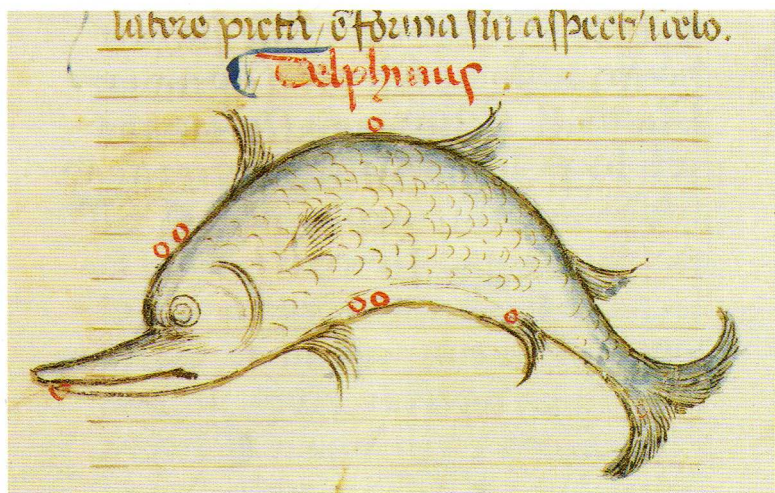 latere picta, ē forma sui aspect, i celo.
Delphinus